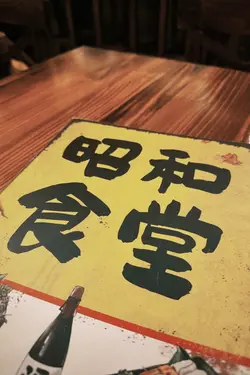 昭和
食堂